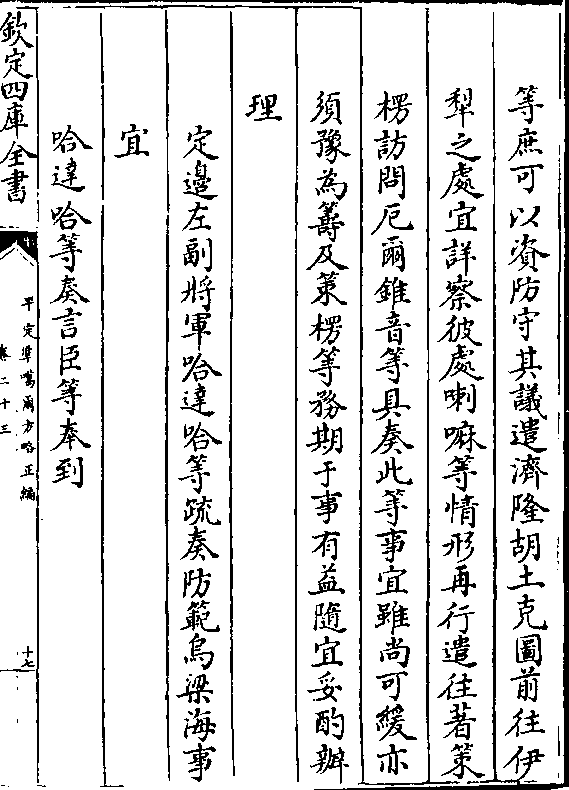 等庶可以資防守其議遣濟隆胡土克圖前往伊
犁之處宜詳察彼處喇嘛等情形再行遣往著策
楞訪問厄爾錐音等具奏此等事宜雖尚可緩亦
須豫為籌及策楞等務期于事有益隨宜妥酌辦
理
定邊左副將軍哈達哈等疏奏防範烏梁海事
宜
哈達哈等奏言臣等奉到
欽定四庫全書
平定準噶爾方略正編
卷二十三
十七